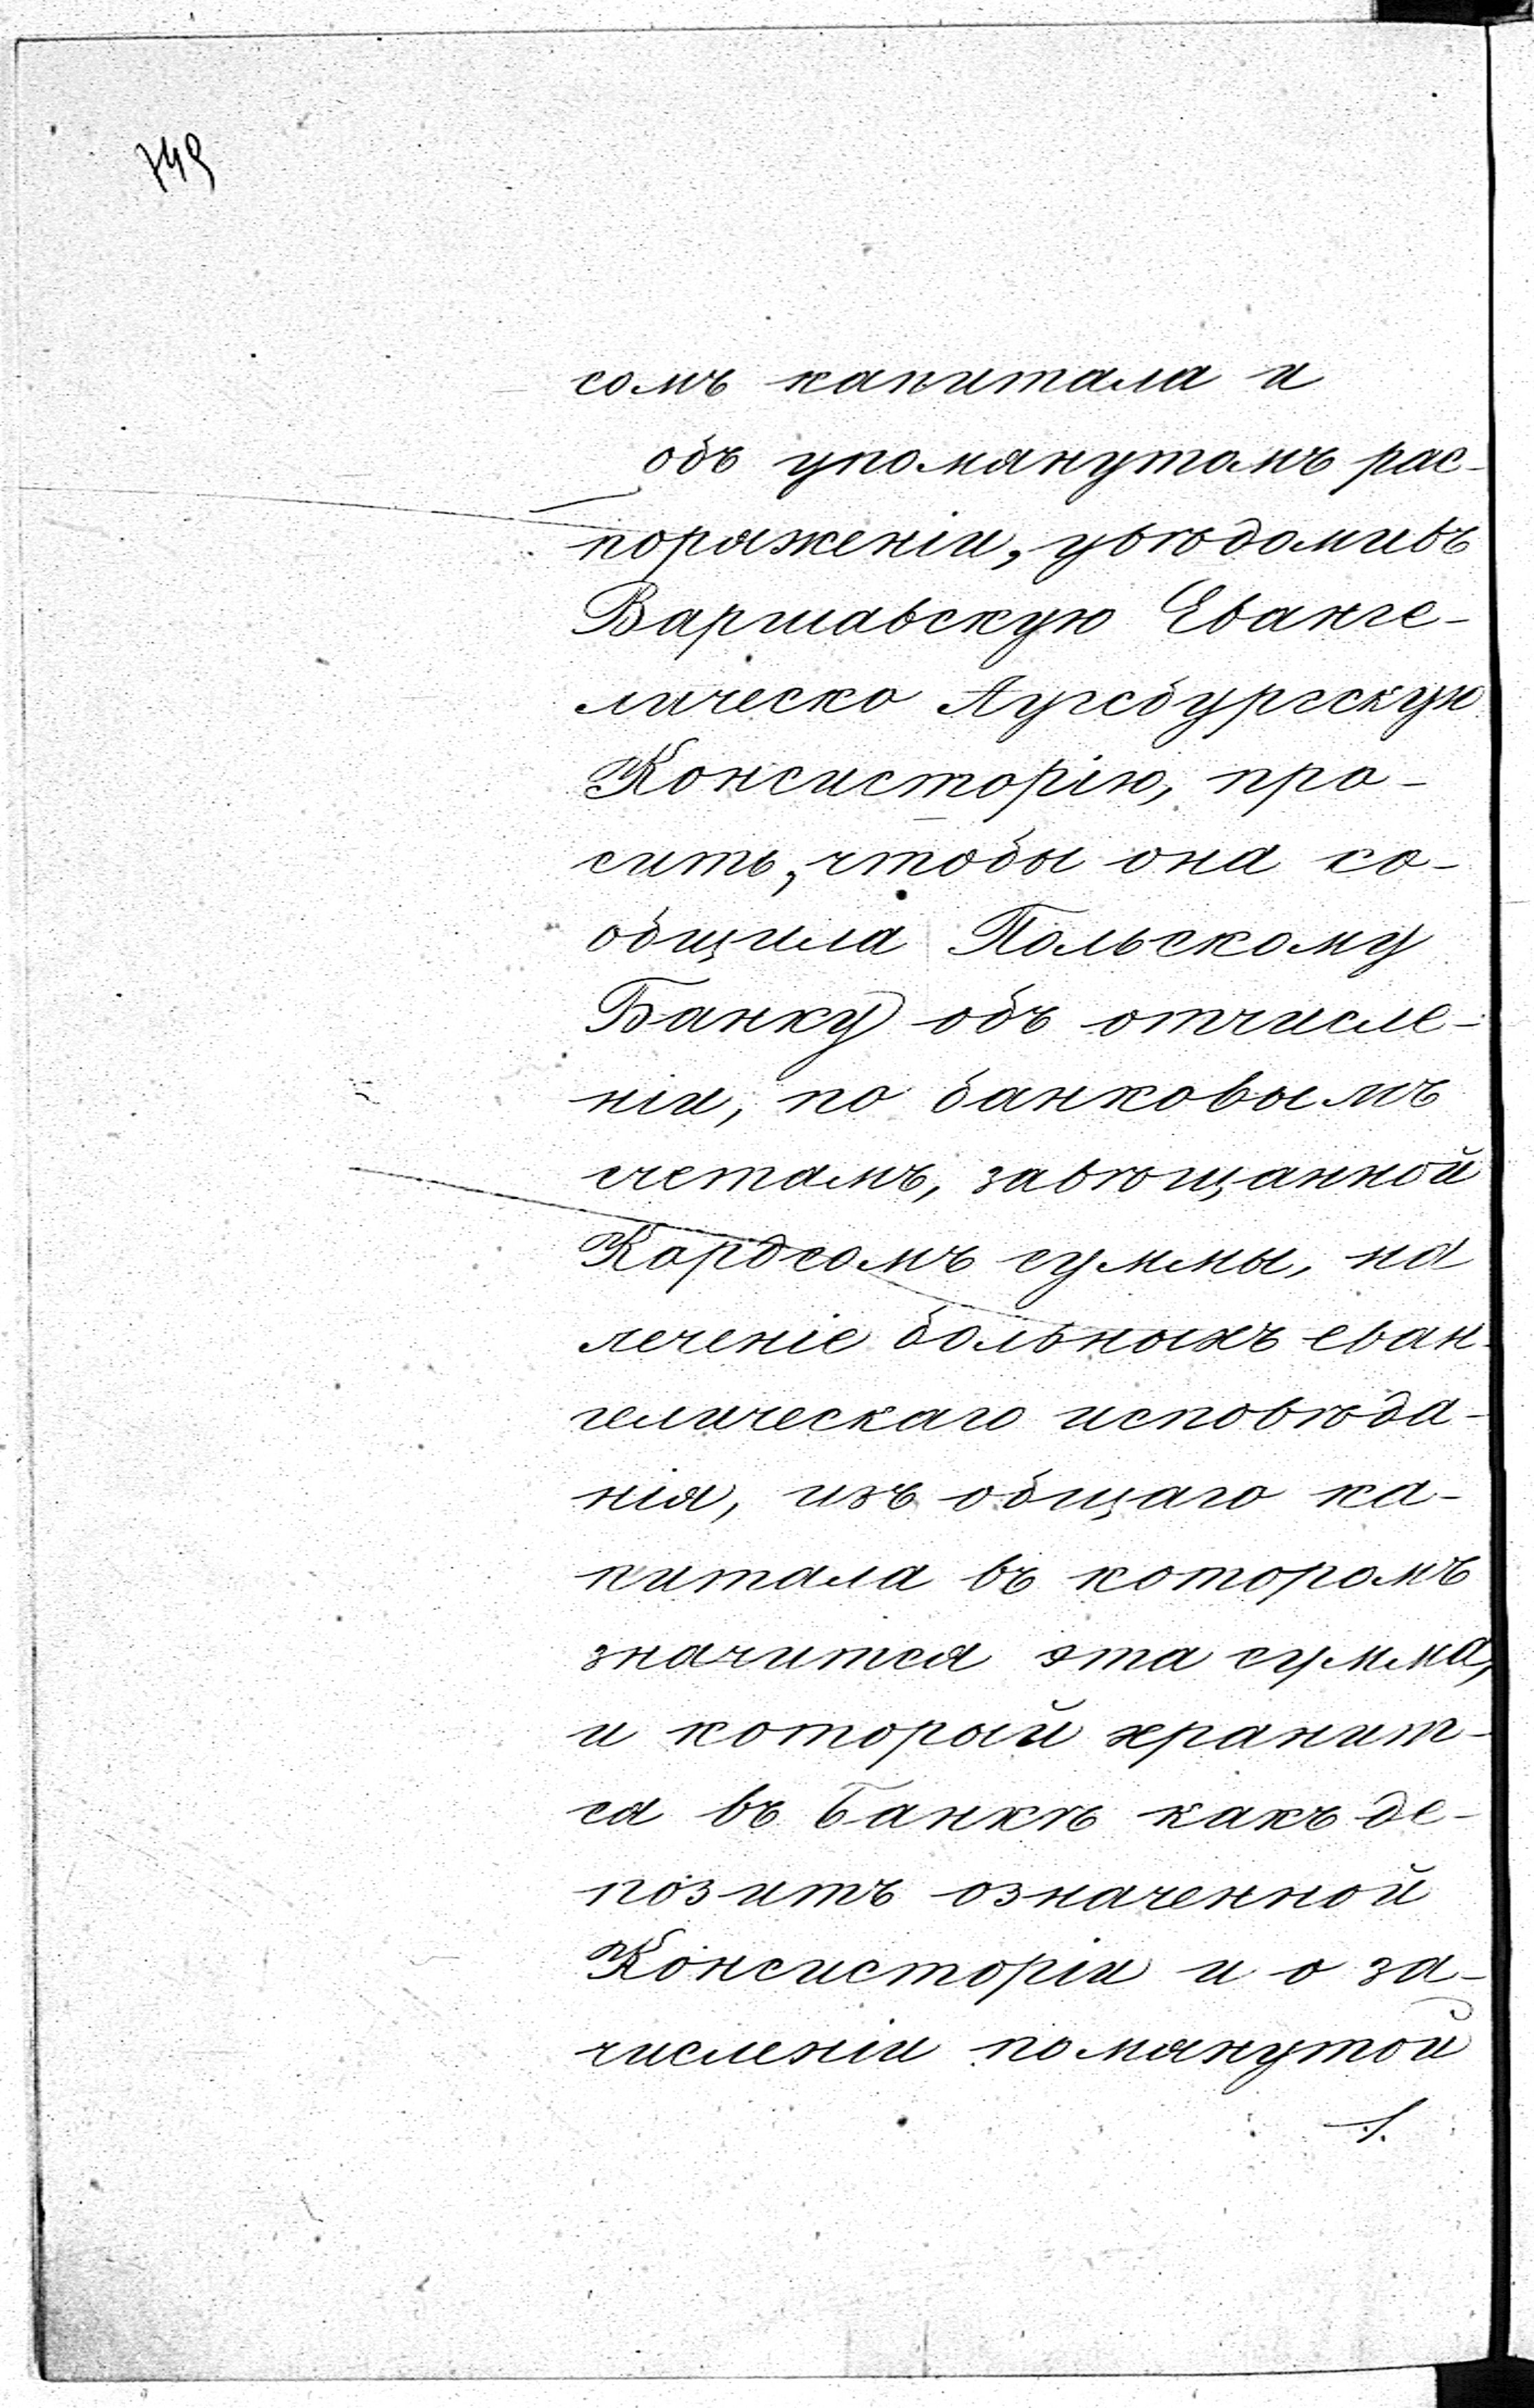 749
сомъ капитала и
объ упомянутомъ рас-
поряженіи, увѣдомивъ
Варшавскую Еванге-
лическо Аугсбургскую
Консисторію, про-
сить, чтобы она со-
общила Польскому
Банку объ отчисле-
ніи, по банковымъ
счетамъ, завѣщанной
Кордсомъ суммы, на
леченіе больныхъ еван-
гелическаго исповѣда-
нія, изъ общаго ка-
питала въ которомъ
значится эта сумма,
и который хранит-
ся въ Банкѣ какъ де-
позитъ означенной
Консисторіи и о за-
численіи помянутой
./.